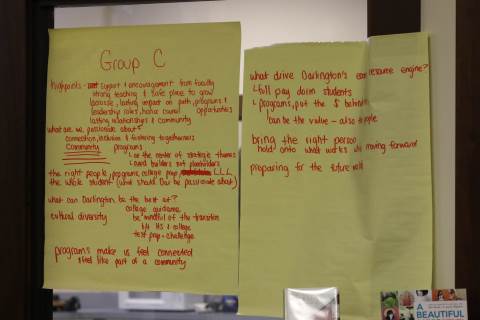 Group C
highpoints - support & encouragement from faculty
strong teaching & safe place to grow
lacrosse, lasting impact on path, programs &
leadership roles, honor council opportunities
lasting relationships & community
what are we passionate about?
connection, inclusion & fostering togetherness
Community programs
↳ at the center of strategic themes
↳ need builders not placeholders
the right people, programs, college prep, LLL,
the whole student (what should Dar be passionate about)
what can Darlington be the best at?
college guidance
cultural diversity be mindful of the transition
b/w HS & college
test prep - challenge
programs make us feel connected
& feel like part of a community
what drive Darlington's resource engine?
↳ full pay dorm students
↳ programs, put the $ behind
can be the value - also people
bring the right person
hold onto what works while moving forward
preparing for the future
A
BEAUTIFUL